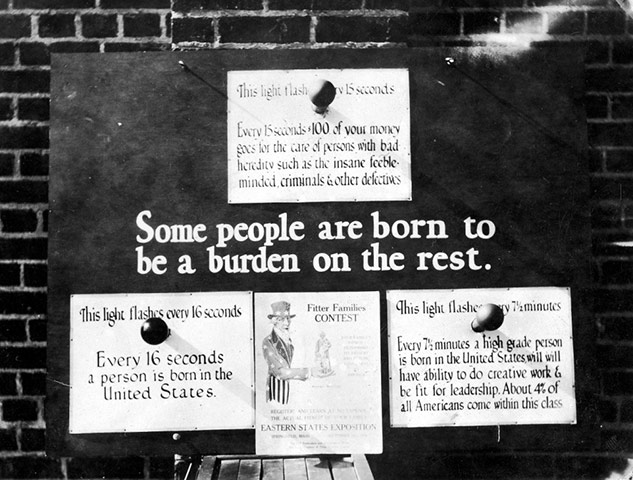 This light flash ry 15 seconds
Every 15 seconds $100 of your money
goes for the care of persons with bad
heredity such as the insane feeble-
minded, criminals & other defectives
Some people are born to
be a burden on the rest.
This light flashes every 16 seconds
Every 16 seconds
a person is born in the
United States.
Fitter Families
CONTEST
EASTERN STATES EXPOSITION
This light flashe ry 7½ minutes
Every 7½ minutes a high grade person
is born in the United States, will will
have ability to do creative work &
be fit for leadership. About 4% of
all Americans come within this class